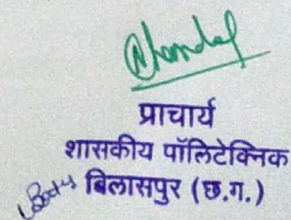 प्राचार्य
शासकीय पॉलिटेक्निक
बिलासपुर (छ.ग.)